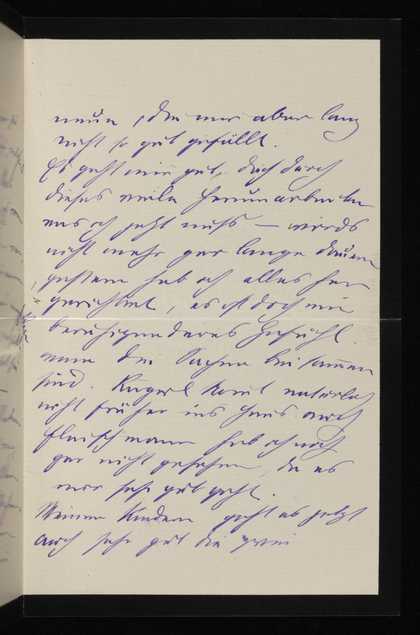 neun, die mir aber lang
nicht so gut gefällt.
Es geht mir gut, doch durch
dieses viele Herumarbeiten
was ich jetzt muss — wirds
nicht mehr gar lange dauern
gestern hab ich alles her
gerichtet, es ist doch ein
beruhigenderes Gefühl
wenn die Sachen beisammen
sind. kommt natürlich
nicht früher ins Haus auch
Fleischmann hab ich noch
gar nicht gesehen, da es
mir sehr gut geht.
Meinen Kindern geht es jetzt
auch sehr gut die zwei